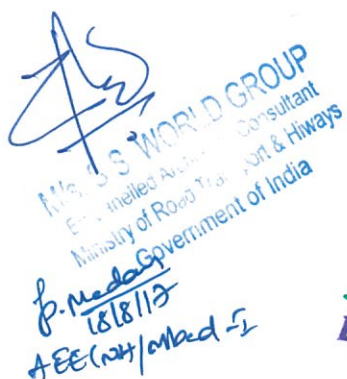 M/s. S S WORLD GROUP
Empanelled Consultant
Ministry of Road Transport & Hiways
Government of India
18/8/17
AEE(NH)